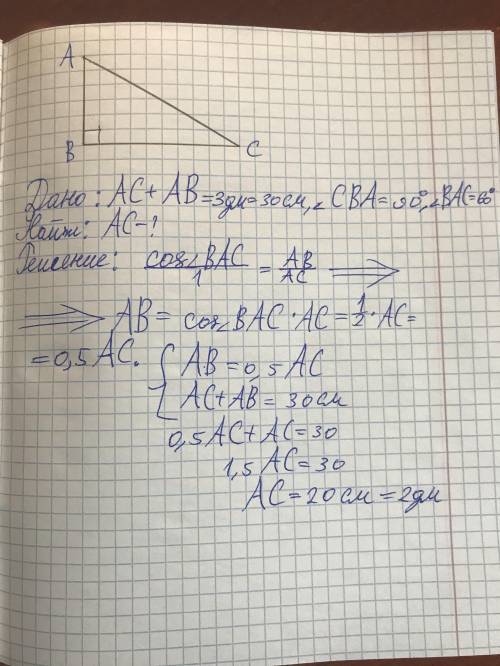 A
B
C
Дано: AC + AB = 3дм = 30 см, ∠CBA = 90°, ∠BAC = 60°
Найти: AC - ?
Решение: cos∠BAC/1 = AB/AC ⟹
⟹ AB = cos∠BAC · AC = 1/2 · AC =
= 0,5 AC. { AB = 0,5 AC
AC + AB = 30 см
0,5 AC + AC = 30
1,5 AC = 30
AC = 20 см = 2 дм